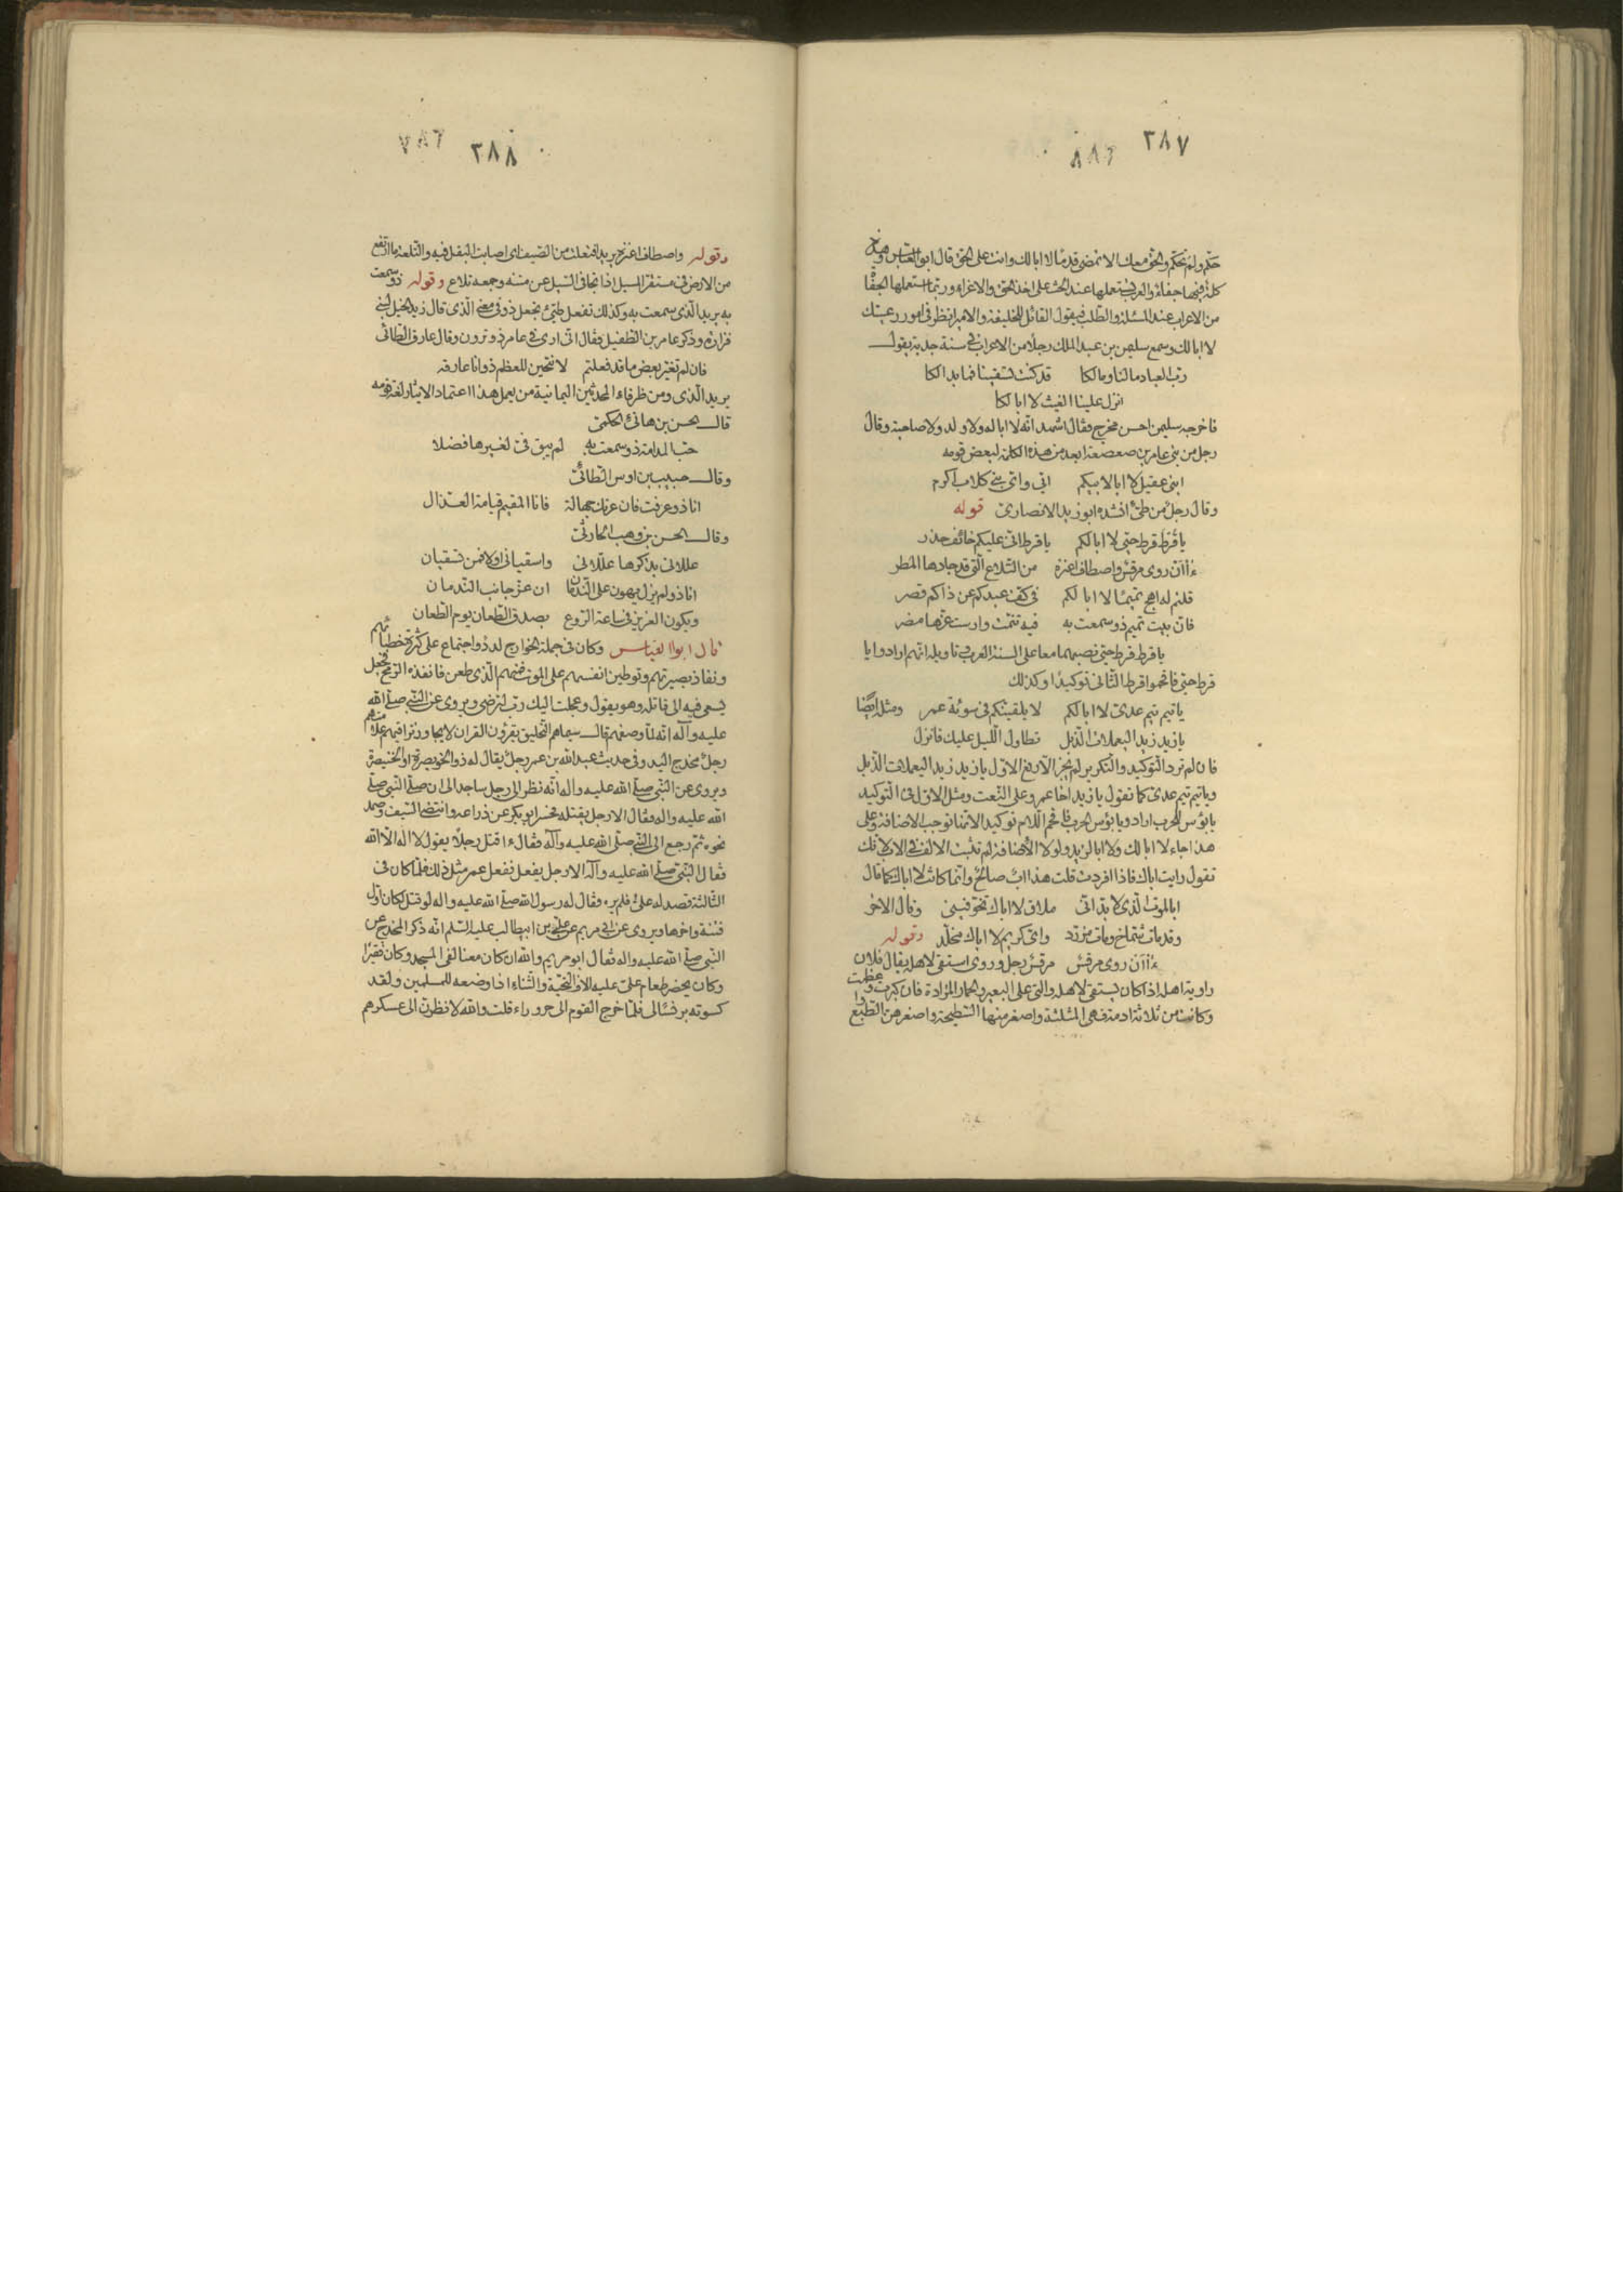 ٢٨٧
حكّم ولم تحكّم والحق معك الا تمضى قدمًا لا ابا لك وانت على الحق قال ابو العباس وهذه
كلمة فيها جفاء والعرب تستعملها عند الحث على اخذ الحق والاغراء وربما استعملها الجفاة
من الاعراب عند المسئلة والطلب فيقول القائل للخليفة والامير انظر فى امور رعيتك
لا ابا لك وسمع سليمن بن عبد الملك رجلا من الاعراب فى سنة جدبة يقول
رب العباد ما لنا وما لكا قد كنت تسقينا فما بدا لكا
انزل علينا الغيث لا ابا لكا
فاخرجه سليمن احسن مخرج فقال اشهد انه لا ابا له ولا ولد ولا صاحبة وقال
رجل من بنى عامر بن صعصعة ابعد من هذه الكلمة لبعض قومه
ابنى عقيل لا ابا لابيكم انى واى بنى كلاب اكرم
وقال رجل من طىّ انشده ابو زيد الانصارى قوله
يا قرط قرط حيى لا ابا لكم يا قرط انى عليكم خائف حذر
ءاآن روى مرقش واصطاف اعنزه من التلاع التى قد جادها المطر
قلتم له اهج تميمًا لا ابا لكم فى كف عبدكم عن ذاكم قصر
فان بيت تميم ذو سمعت به فيه تنمت وارست عزها مضر
يا قرط قرط حيى نصبهما معا على السنة العرب تاويله انهم ارادوا يا
قرط حيى فاقحموا قرطا الثانى توكيدًا وكذلك
يا تيم تيم عدى لا ابا لكم لا يلقينكم فى سوئة عمر ومثله ايضًا
يا زيد زيد اليعملات الذبل تطاول الليل عليك فانزل
فان لم ترد التوكيد والتكرير لم يجز الا رفع الاول يا زيد زيد اليعملات الذبل
ويا تيم تيم عدى كما تقول يا زيد اخا عمرو على النعت ومثل الاول فى التوكيد
يا بؤس للحرب اراد ويا بؤس الحرب فاقحم اللام توكيدا لانها توجب الاضافة وعلى
هذا جاء لا ابا لك ولا ابا لزيد ولولا الاضافة لم تثبت الالف فى الاب لانك
تقول رايت اباك فاذا افردت قلت هذا اب صالح وانما كانت لا اباك كما قال
ابالموت الذى لا بد انى ملاق لا اباك تخوفينى وقال الاخر
وقد مات شماخ ومات مزرد واى كريم لا اباك مخلد وقوله
ءاآن روى مرقش مرقش رجل وروى استقى لاهله يقال فلان
راوية اهله اذا كان يستقى لاهله والتى على البعير والحمار المزادة فان كبرت وعظمت
وكانت من ثلاثة ادمة فهى المثلثة واصغر منها السطيحة واصغرهن الطبع
٢٨٨
وقوله واصطاف اعنزه يريد افتعلت من الصيف اى اصابت البقل فيه والتلعة ما ارتفع
من الارض فى مستقر المسيل اذا تجافى السيل عن متنه وجمعه تلاع وقوله ذو سمعت
به يريد الذى سمعت به وكذلك تفعل طيّئ تجعل ذو فى معنى الذى قال زيد الخيل لبنى
فزارة وذكر عامر بن الطفيل فقال انى ارى فى عامر ذو ترون وقال عارق الطائى
فان لم تغير بعض ما قد فعلتم لانتحين للعظم ذو انا عارقه
يريد الذى ومن ظرفاء المحدثين اليمانية من يعمل هذا اعتمادا لايثار لغة قومه
قال الحسن بن هانئ الحكمى
حب المدامة ذو سمعت به لم يبق فى لغيرها فضلا
وقال حبيب بن اوس الطائى
انا ذو عرفت فان عرتك جهالة فانا المقيم قيامة العذال
وقال الحسن بن وهب الحارثى
عللانى بذكرها عللانى واسقيانى اولا فمن تسقيان
انا ذو لم يزل يهون على الندمان ان عز جانب الندمان
ويكون العزيز فى ساعة الروع بصدق الطعان يوم الطعان
قال ابو العباس وكان فى جملة الخوارج لدد واجتماع على كثرة خطبائهم
ونفاذ بصيرتهم وتوطين انفسهم على الموت فمنهم الذى طعن فانفذه الرمح فجعل
يسعى فيه الى قاتله وهو يقول وعجلت اليك رب لترضى ويروى عن النبى صلى الله
عليه وآله انه لما وصفهم قال سيماهم التحليق يقرؤن القران لا يجاوز تراقيهم علامتهم
رجل مخدج اليد وفى حديث عبد الله بن عمر رجل يقال له ذو الخويصرة او الخنيصرة
ويروى عن النبى صلى الله عليه وآله انه نظر الى رجل ساجد الى ان صلى النبى صلى
الله عليه واله فقال الا رجل يقتله فحسر ابو بكر عن ذراعه وانتضى السيف وصمد
نحوه ثم رجع الى النبى صلى الله عليه وآله فقال ءاقتل رجلا يقول لا اله الا الله
فقال النبى صلى الله عليه وآله الا رجل يفعل ففعل عمر مثل ذلك فلما كان فى
الثالثة قصد له على فلم يره فقال له رسول الله صلى الله عليه واله لو قتل لكان اول
فتنة واخرها ويروى عن ابى مريم عن على بن ابيطالب عليه السلم انه ذكر المخدج عن
النبى صلى الله عليه واله فقال ابو مريم والله ان كان معنا لفى المسجد وكان فقيرا
وكان يحضر طعام على عليه الاف التحية والثناء اذا وضعه للمسلمين ولقد
كسوته برنسًا لى فلما خرج القوم الى حروراء قلت والله لانظرن الى عسكرهم